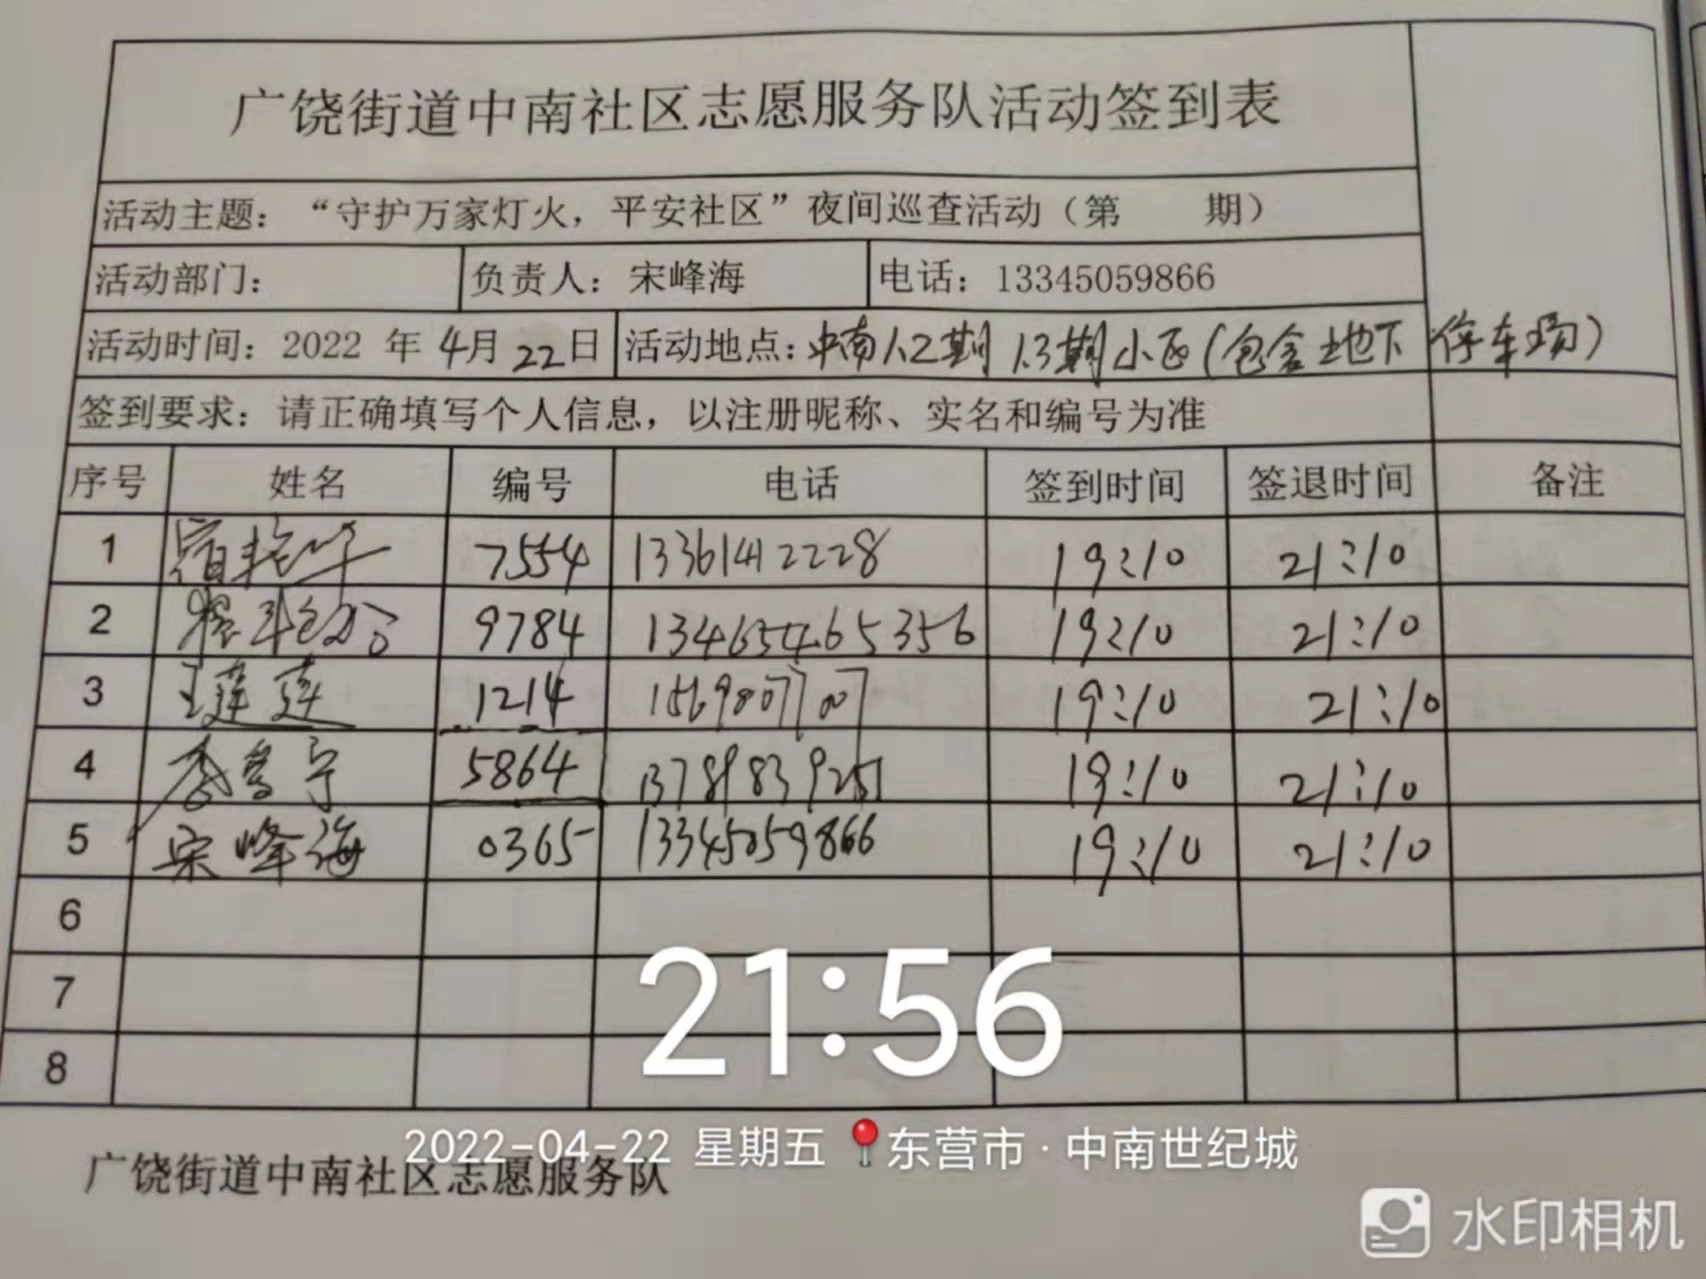 广饶街道中南社区志愿服务队活动签到表
活动主题：“守护万家灯火，平安社区”夜间巡查活动（第 期）
活动部门： 负责人：宋峰海 电话：13345059866
活动时间：2022 年 4月 22日 活动地点：中南1.2期 1.3期小区（包含地下停车场）
签到要求：请正确填写个人信息，以注册昵称、实名和编号为准
序号 姓名 编号 电话 签到时间 签退时间 备注
1 7554 13361412228 19:10 21:10
2 9784 13465465356 19:10 21:10
3 王莲莲 1214 15698077007 19:10 21:10
4 5864 13789839251 19:10 21:10
5 宋峰海 0365 13345059866 19:10 21:10
6
7
8
21:56
2022-04-22 星期五 东营市·中南世纪城
广饶街道中南社区志愿服务队
水印相机